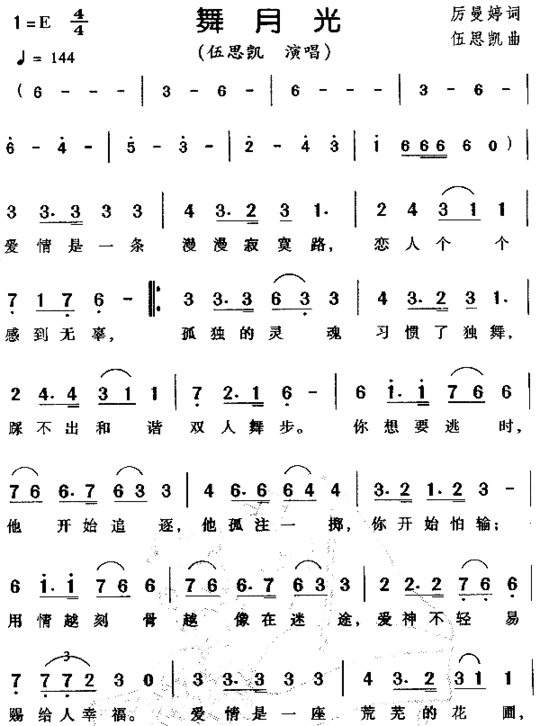 舞月光
1=E 4/4
厉曼婷词
(伍思凯 演唱)
伍思凯曲
♩= 144
( 6 - - - | 3 - 6 - | 6 - - - | 3 - 6 -
6 - 4 - | 5 - 3 - | 2 - 4 3 | 1 666 6 0 )
3 3. 3 3 3 | 4 3. 2 3 1. | 2 4 3 1 1
爱情是一条 漫漫寂寞路, 恋人个个
7 1 7 6 - ‖: 3 3. 3 6 3 3 | 4 3. 2 3 1.
感到无辜, 孤独的灵魂 习惯了独舞,
2 4. 4 3 1 1 | 7 2. 1 6 - | 6 1. 1 7 6 6
踩不出和谐 双人舞步。 你想要逃时,
7 6 6. 7 6 3 3 | 4 6. 6 6 4 4 | 3. 2 1. 2 3 -
他开始追逐, 他孤注一掷, 你开始怕输;
6 1. 1 7 6 6 | 7 6 6. 7 6 3 3 | 2 2. 2 7 6
用情越刻骨 越像在迷途, 爱神不轻易
7 7 7 2 3 0 | 3 3. 3 3 3 | 4 3. 2 3 1 1
3
赐给人幸福。 爱情是一座 荒芜的花圃,